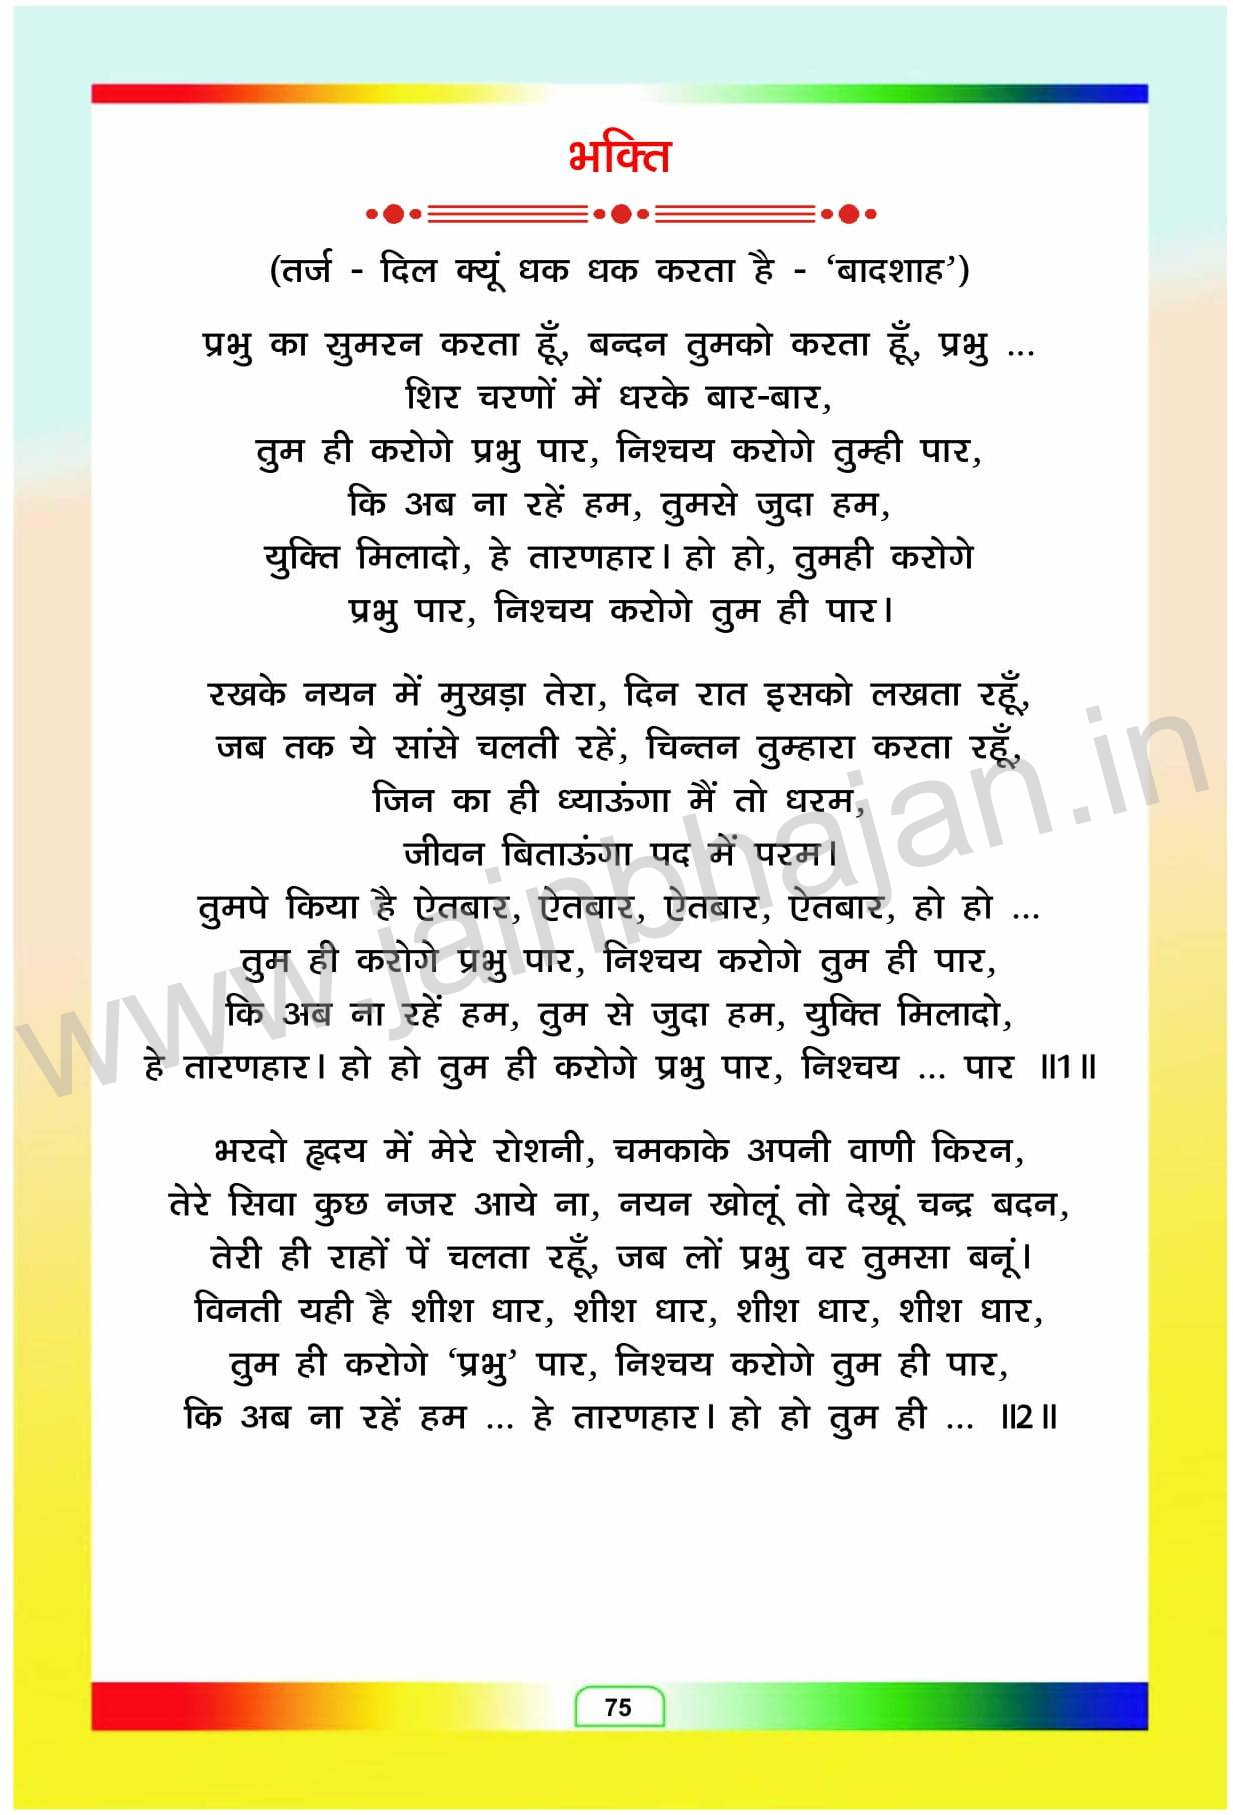 भक्ति
(तर्ज - दिल क्यूं धक धक करता है - ‘बादशाह’)
प्रभु का सुमरन करता हूँ, बन्दन तुमको करता हूँ, प्रभु ...
शिर चरणों में धरके बार-बार,
तुम ही करोगे प्रभु पार, निश्चय करोगे तुम्ही पार,
कि अब ना रहें हम, तुमसे जुदा हम,
युक्ति मिलादो, हे तारणहार। हो हो, तुमही करोगे
प्रभु पार, निश्चय करोगे तुम ही पार।
रखके नयन में मुखड़ा तेरा, दिन रात इसको लखता रहूँ,
जब तक ये सांसे चलती रहें, चिन्तन तुम्हारा करता रहूँ,
जिन का ही ध्याऊंगा मैं तो धरम,
जीवन बिताऊंगा पद में परम।
तुमपे किया है ऐतबार, ऐतबार, ऐतबार, ऐतबार, हो हो ...
तुम ही करोगे प्रभु पार, निश्चय करोगे तुम ही पार,
कि अब ना रहें हम, तुम से जुदा हम, युक्ति मिलादो,
हे तारणहार। हो हो तुम ही करोगे प्रभु पार, निश्चय ... पार ॥1॥
भरदो हृदय में मेरे रोशनी, चमकाके अपनी वाणी किरन,
तेरे सिवा कुछ नजर आये ना, नयन खोलूं तो देखूं चन्द्र बदन,
तेरी ही राहों पें चलता रहूँ, जब लों प्रभु वर तुमसा बनूं।
विनती यही है शीश धार, शीश धार, शीश धार, शीश धार,
तुम ही करोगे ‘प्रभु’ पार, निश्चय करोगे तुम ही पार,
कि अब ना रहें हम ... हे तारणहार। हो हो तुम ही ... ॥2॥
www.jainbhajan.in
75